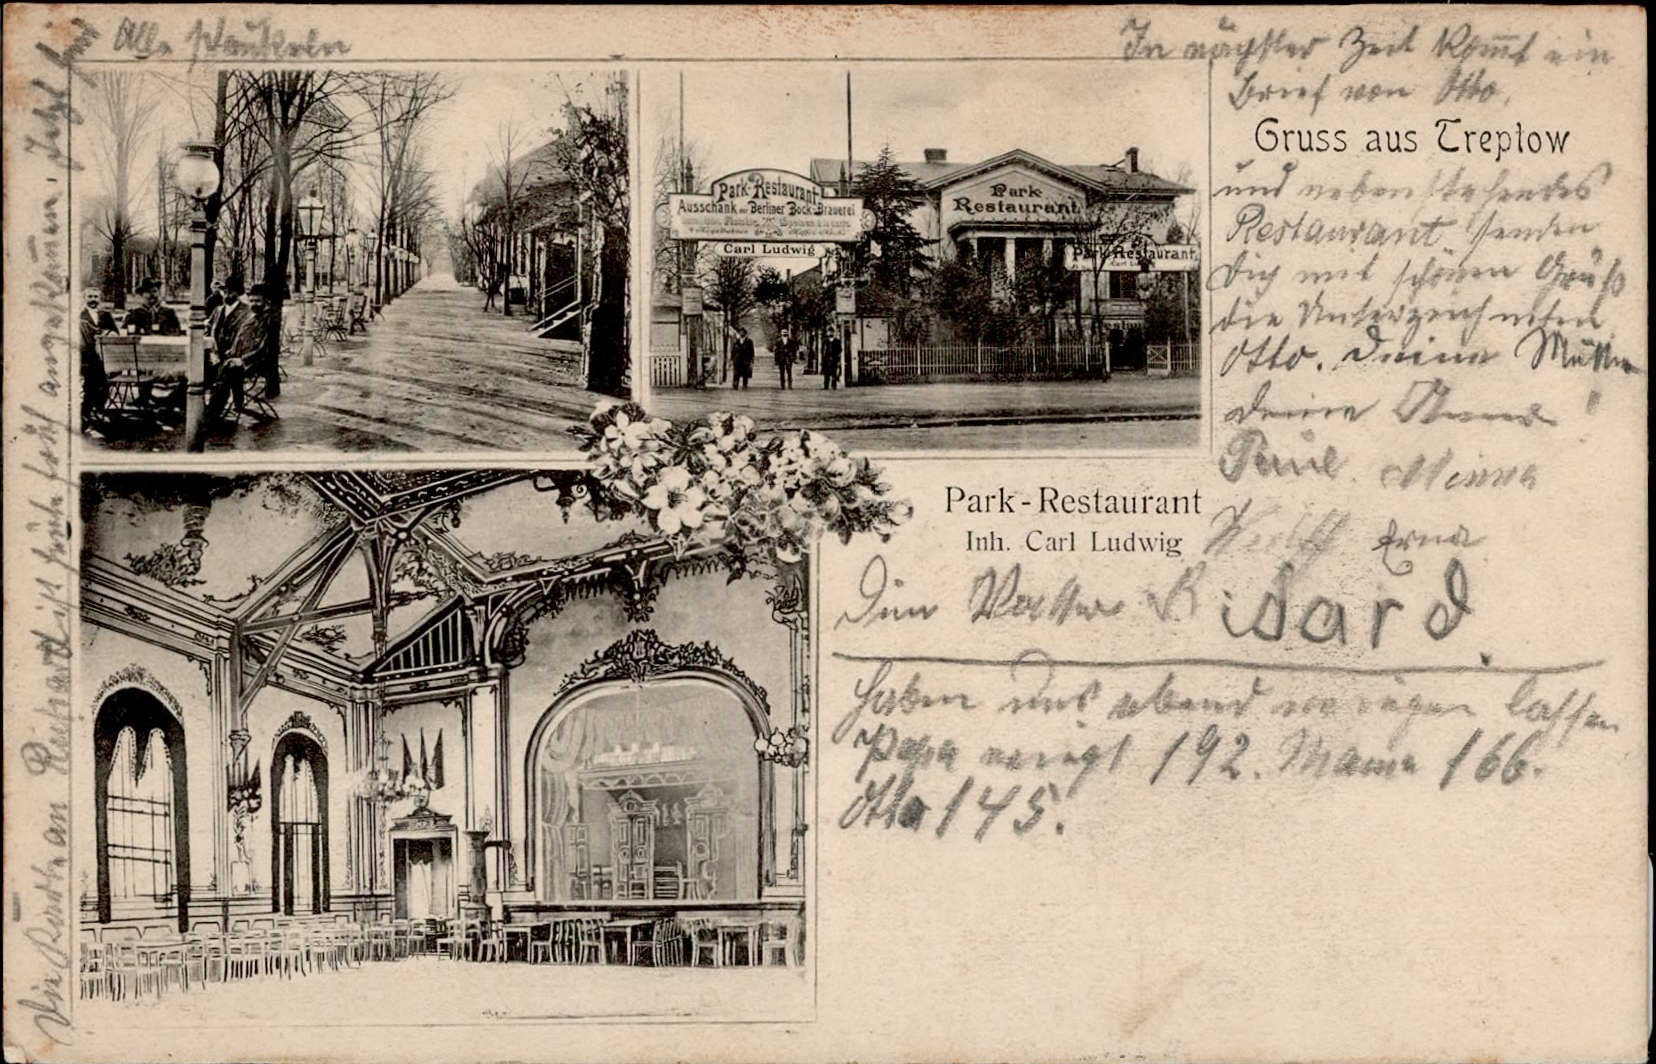 Alle schaukeln
In nächster Zeit kommt ein
Brief von Otto,
Gruss aus Treptow
und nebenstehendes
Restaurant senden
Dich mit schönen Gruß
die Unterzeichneten
Otto. Deine Mutter
deine Anna
Paul. Minna
Erna
Park-Restaurant
Inh. Carl Ludwig
Dein Vatter Ridard.
Haben uns abend wiegen lassen
Papa wiegt 192. Mama 166.
Otto 145.
Die Karte an Reichard ist heute früh angekommen. Jetzt
Park-Restaurant
Ausschank der Berliner Bock-Brauerei
Carl Ludwig
Park-
Restaurant
Park-Restaurant